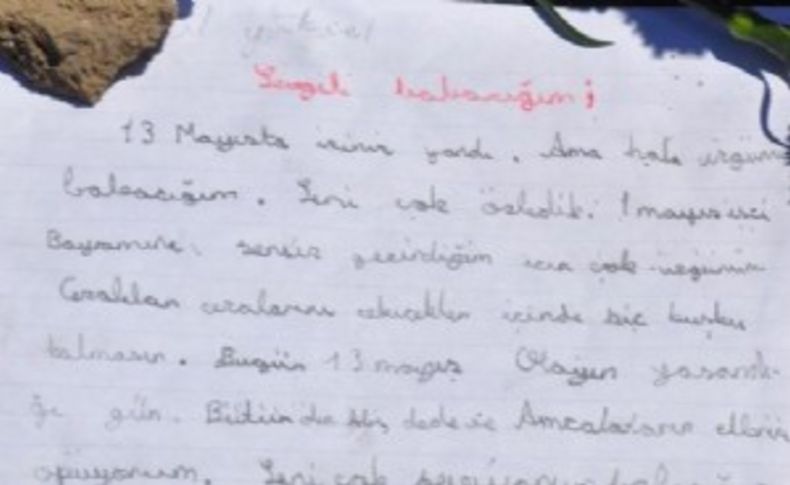 Sevgili babacığım;
13 Mayısta içiniz yandı. Ama hala üzgünüm
babacığım. Seni çok özledik. 1 mayıs işçi
Bayramını sensiz geçirdiğim için çok üzgünüm
cezaları çekecekler içinde hiç kuşku
kalmasın. Bugün 13 mayıs Olayın yaşandı-
ğı gün. Bütün dede ve Amcaların ellerin
öpüyorum. Seni çok seviyorum